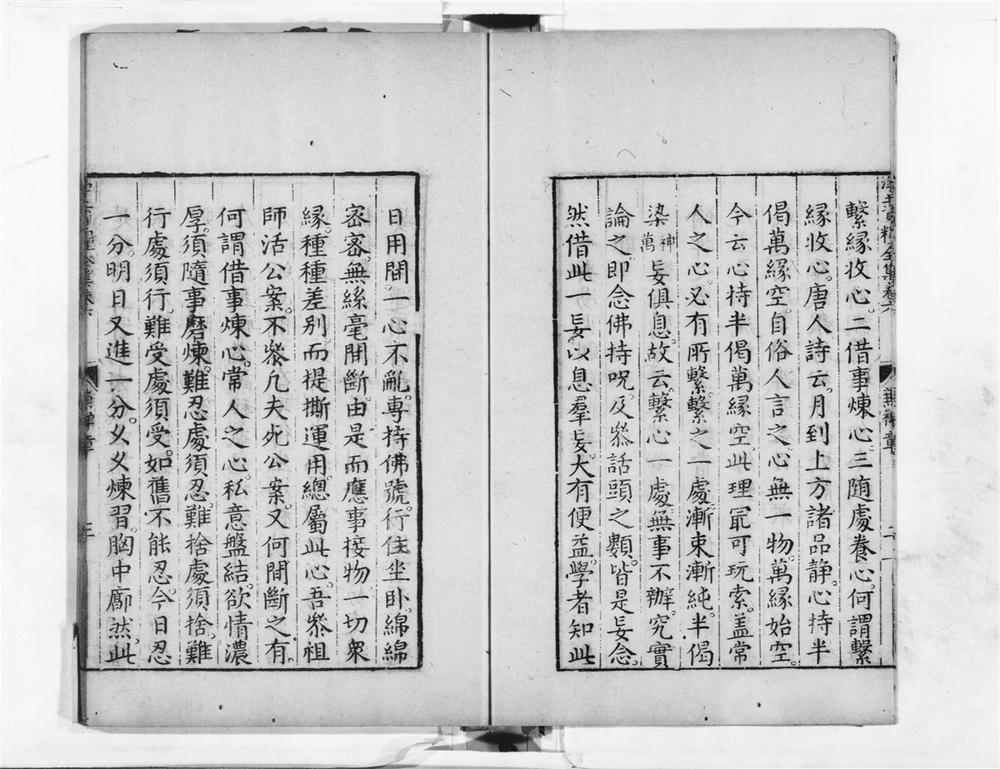 淨土資糧全集卷六 兼禪章 二
繫緣收心。二借事煉心。三隨處養心。何謂繫
緣收心。唐人詩云。月到上方諸品静。心持半
偈萬緣空。自俗人言之。心無一物。萬緣始空。
今云心持半偈萬緣空此理冣可玩索。盖常
人之心。必有所繫。繫之一處漸束漸純。半偈
染神萬妄俱息。故云。繫心一處無事不辦。究實
論之即念佛持呪。及叅話頭之類。皆是妄念。
然借此一妄以息羣妄。大有便益。學者知此
日用間一心不亂。專持佛號。行住坐卧。綿綿
宻宻。無絲毫間斷。由是而應事接物一切衆
緣。種種差别而提撕運用。總屬此心。吾叅祖
師活公案。不叅凡夫死公案。又何間斷之有。
何謂借事煉心。常人之心。私意盤結。欲情濃
厚。須隨事磨煉。難忍處須忍。難捨處須捨。難
行處須行。難受處須受。如舊不能忍。今日忍
一分。明日又進一分。乆乆煉習。胸中廓然。此